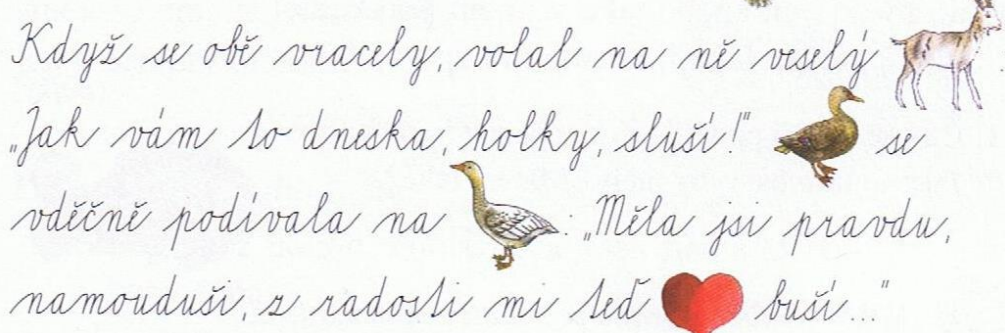 Když se obě vracely, volal na ně veselý :
„Jak vám to dneska, holky, sluší!" se
vděčně podívala na : „Měla jsi pravdu,
namouduši, z radosti mi teď buší..."